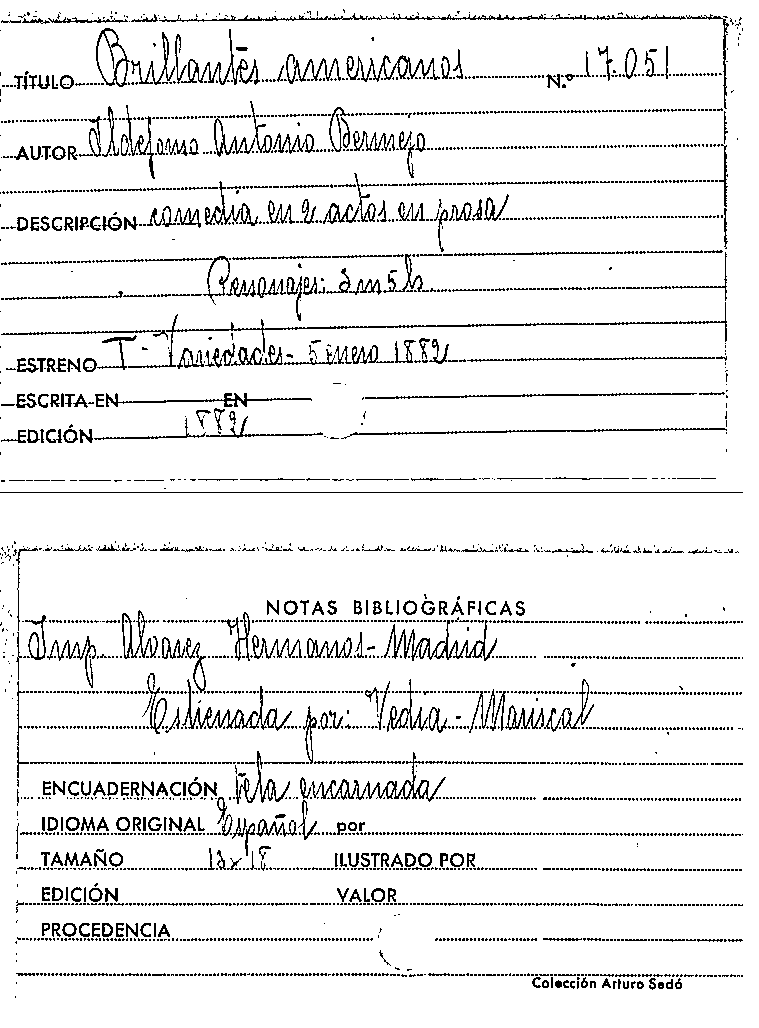 TÍTULO Brillantes americanos N.º 17.051
AUTOR Ildefonso Antonio Bermejo
DESCRIPCIÓN comedia en 2 actos en prosa
Personajes: 3 m 5 h
ESTRENO T- Variedades- 5 enero 1882
ESCRITA EN EN
EDICIÓN 1882
NOTAS BIBLIOGRÁFICAS
Imp. Alvarez Hermanos- Madrid
Estrenada por: Vedia - Mariscal
ENCUADERNACIÓN tela encarnada
IDIOMA ORIGINAL Español por
TAMAÑO 12x18 ILUSTRADO POR
EDICIÓN VALOR
PROCEDENCIA
Colección Arturo Sedó